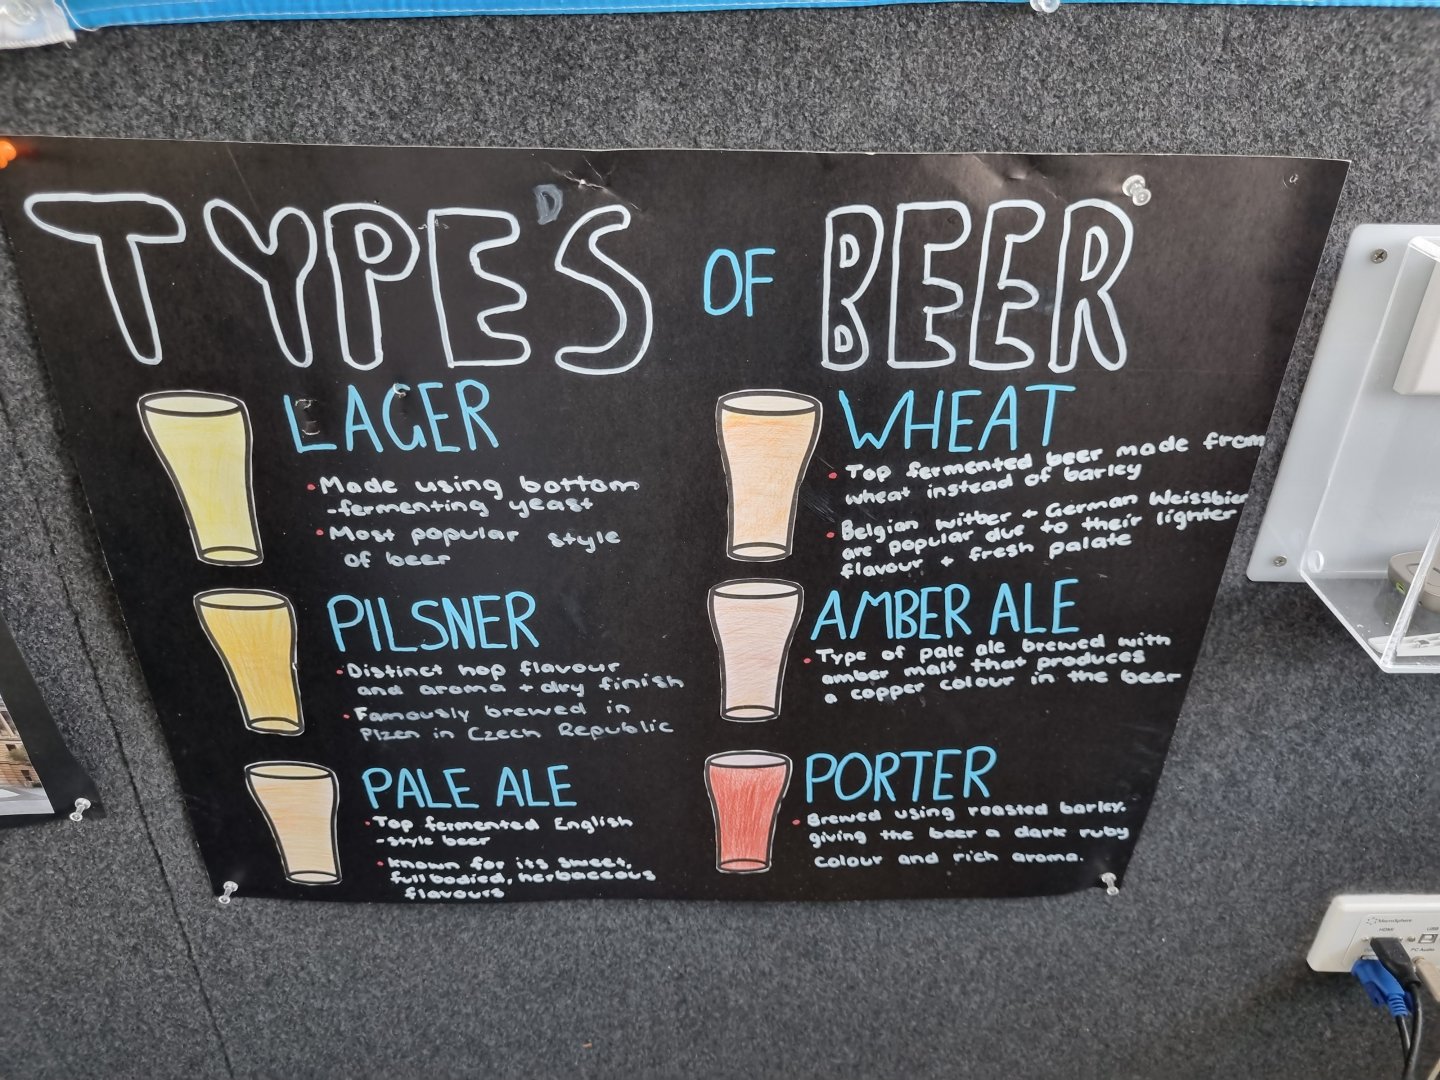 TYPE'S OF BEER
LAGER
• Made using bottom
-fermenting yeast
• Most popular style
of beer
PILSNER
• Distinct hop flavour
and aroma + dry finish
• Famously brewed in
Plzen in Czech Republic
PALE ALE
• Top fermented English
-style beer
• Known for its sweet,
full bodied, herbaceous
flavours
WHEAT
• Top fermented beer made from
wheat instead of barley
• Belgian witber + German Weissbier
are popular due to their lighter
flavour + fresh palate
AMBER ALE
• Type of pale ale brewed with
amber malt that produces
a copper colour in the beer
PORTER
• Brewed using roasted barley.
giving the beer a dark ruby
colour and rich aroma.
HDMI
USB
PC Audio